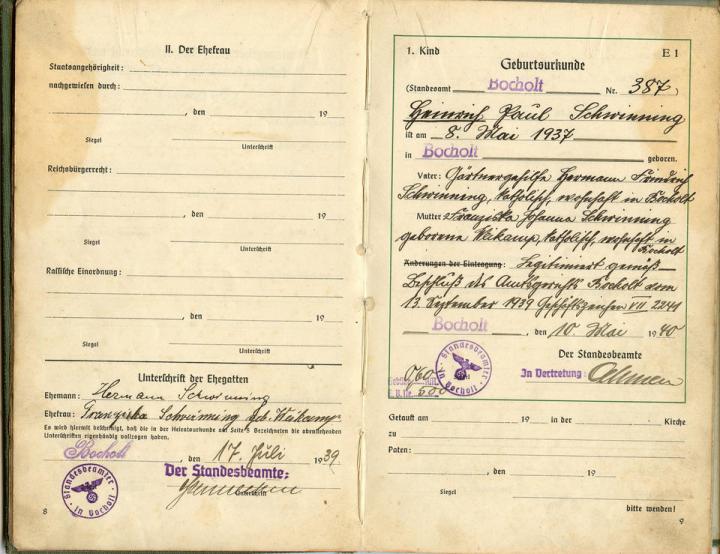 II. Der Ehefrau
Staatsangehörigkeit:
nachgewiesen durch:
, den 19
Siegel Unterschrift
Reichsbürgerrecht:
, den 19
Siegel Unterschrift
Rassische Einordnung:
, den 19
Siegel Unterschrift
Unterschrift der Ehegatten
Ehemann: Hermann Schwinning
Ehefrau: Franziska Schwinning geb. Weikamp
Es wird hiermit bescheinigt, daß die in der Heiratsurkunde auf Seite 5 Bezeichneten die obenstehenden
Unterschriften eigenhändig vollzogen haben.
Bocholt, den 17. Juli 1939
Der Standesbeamte:
Unterschrift
Standesbeamter in Bocholt
8
1. Kind E 1
Geburtsurkunde
(Standesamt Bocholt Nr. 387)
Heinrich Paul Schwinning
ist am 8. Mai 1937
in Bocholt geboren.
Vater: Gärtnergehilfe Hermann Friedrich
Schwinning, katholisch, wohnhaft in Bocholt
Mutter: Franziska Johanna Schwinning
geborene Weikamp, katholisch, wohnhaft in
Bocholt
Änderungen der Eintragung: Legitimiert gemäß
Beschluß des Amtsgerichts Bocholt vom
13. September 1939 Geschäftszeichen VII. 2241
Bocholt, den 10. Mai 1940
Der Standesbeamte
In Vertretung:
Standesbeamter in Bocholt
0,60
Getauft am 19 in der Kirche
zu
Paten:
, den 19
Siegel
bitte wenden!
9